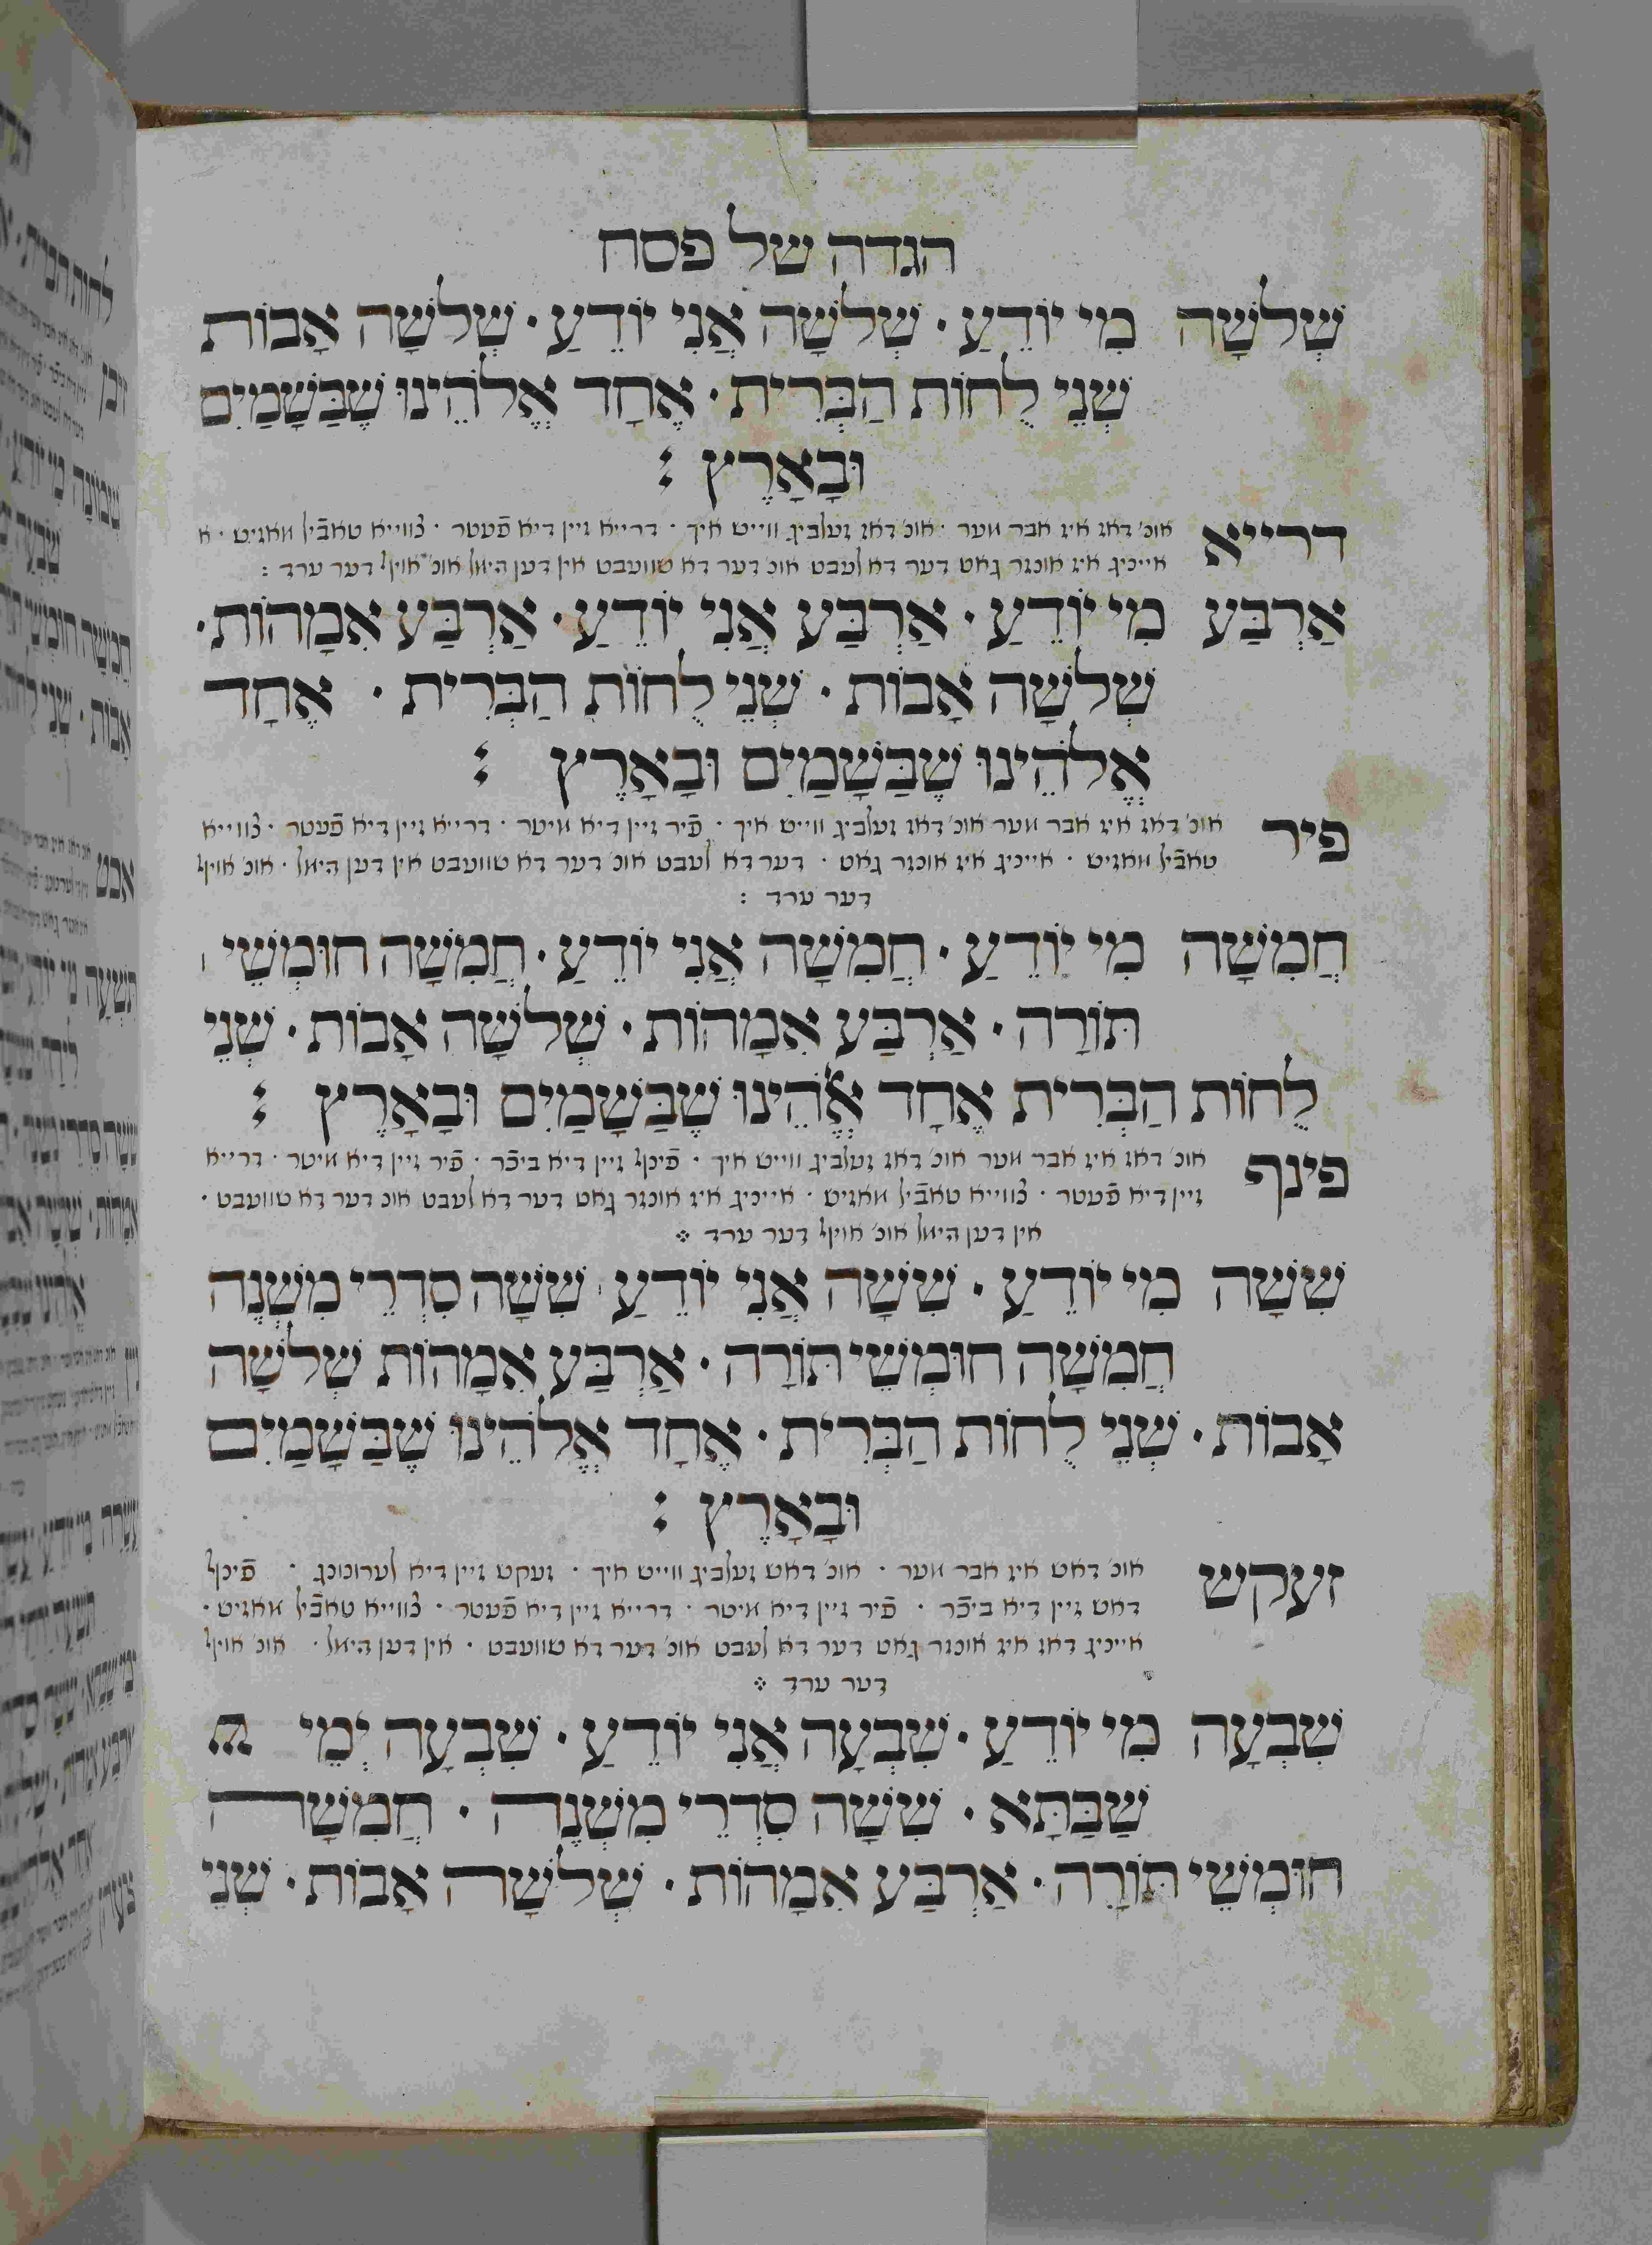 הגדה של פסח
שְׁלשָׁה מִי יוֹדֵעַ · שְׁלשָׁה אֲנִי יוֹדֵעַ · שְׁלשָׁה אָבוֹת
שְׁנֵי לֻחוֹת הַבְּרִית · אֶחָד אֱלֹהֵינוּ שֶׁבַּשָּׁמַיִם
וּבָאָרֶץ :
דרייא אוכ׳ דאז איז אבר מער · אוכ׳ דאז זעלביג ווייס איך · דרייא זיין דיא פֿעטר · צווייא טאבֿיל מאזיס · א
אייניג איז אונזר גאט דער דא לעבט אוכ׳ דער דא שוועבט אין דען הימל אוכ׳ אויף דער ערד :
אַרְבַּע מִי יוֹדֵעַ · אַרְבַּע אֲנִי יוֹדֵעַ · אַרְבַּע אִמָהוֹת ·
שְׁלשָׁה אָבוֹת · שְׁנֵי לֻחוֹת הַבְּרִית · אֶחָד
אֱלֹהֵינוּ שֶׁבַּשָּׁמַיִם וּבָאָרֶץ :
פיר אוכ׳ דאז איז אבר מער אוכ׳ דאז זעלביג ווייס איך · פֿיר זיין דיא מיטר · דרייא זיין דיא פֿעטר · צווייא
טאבֿיל מאזיס · אייניג איז אונזר גאט · דער דא לעבט אוכ׳ דער דא שוועבט אין דען הימל · אוכ׳ אויף
דער ערד :
חֲמִשָּׁה מִי יוֹדֵעַ · חֲמִשָּׁה אֲנִי יוֹדֵעַ · חֲמִשָּׁה חוּמְשֵׁי
תּוֹרָה · אַרְבַּע אִמָהוֹת · שְׁלשָׁה אָבוֹת · שְׁנֵי
לֻחוֹת הַבְּרִית אֶחָד אֱלֹהֵינוּ שֶׁבַּשָּׁמַיִם וּבָאָרֶץ :
פינף אוכ׳ דאז איז אבר מער אוכ׳ דאז זעלביג ווייס איך · פֿינף זיין דיא ביכֿר · פֿיר זיין דיא מיטר · דרייא
זיין דיא פֿעטר · צווייא טאבֿיל מאזיס · אייניג איז אונזר גאט דער דא לעבט אוכ דער דא שוועבט ·
אין דען הימל אוכ׳ אויף דער ערד
שִׁשָּׁה מִי יוֹדֵעַ · שִׁשָּׁה אֲנִי יוֹדֵעַ · שִׁשָּׁה סִדְרֵי מִשְׁנָה
חֲמִשָּׁה חוּמְשֵׁי תּוֹרָה · אַרְבַּע אִמָהוֹת שְׁלשָׁה
אָבוֹת · שְׁנֵי לֻחוֹת הַבְּרִית · אֶחָד אֱלֹהֵינוּ שֶׁבַּשָּׁמַיִם
וּבָאָרֶץ :
זעקש אוכ׳ דאש איז אבר מער · אוכ׳ דאש זעלביג ווייס איך · זעקש זיין דיא לערנונג · פֿינף
דאש זיין דיא ביכֿר · פֿיר זיין דיא מיטר · דרייא זיין דיא פֿעטר · צווייא טאבֿיל מאזיס ·
אייניג דאז איז אונזר גאט דער דא לעבט אוכ׳ דער דא שוועבט · אין דען הימל · אוכ׳ אויף
דער ערד
שִׁבְעָה מִי יוֹדֵעַ · שִׁבְעָה אֲנִי יוֹדֵעַ · שִׁבְעָה יְמֵי
שַׁבַּתָּא · שִׁשָּׁה סִדְרֵי מִשְׁנָה · חֲמִשָּׁה
חוּמְשֵׁי תּוֹרָה · אַרְבַּע אִמָהוֹת · שְׁלשָׁה אָבוֹת · שְׁנֵי